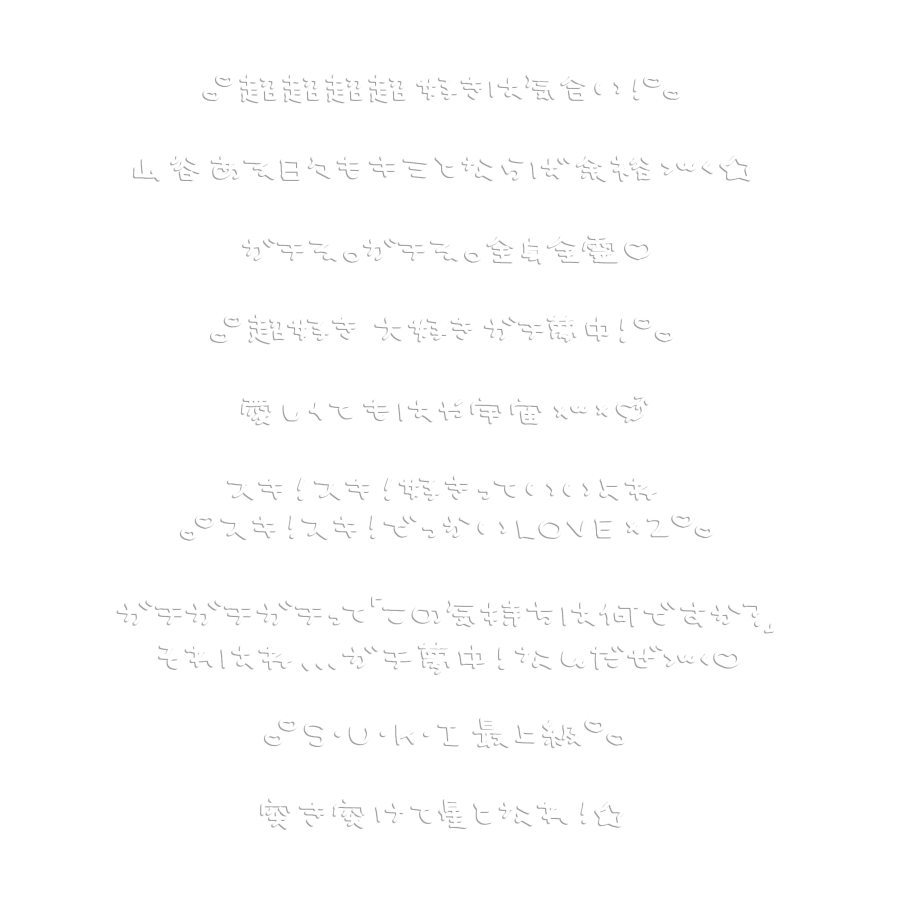 超超超超 好きは気合い!
山谷ある日々もキミとならば余裕〜☆
ガチで。ガチで。全身全霊♡
超好き 大好き ガチ夢中!
愛しくてもはや宇宙×〜×
スキ!スキ!好きっていいよね
スキ!スキ!でっかいLOVE×2
ガチガチガチって「この気持ちは何ですか?」
それはね...ガチ夢中!なんだぜ〜♡
S・U・K・I 最上級
愛き愛けて星となれ!☆